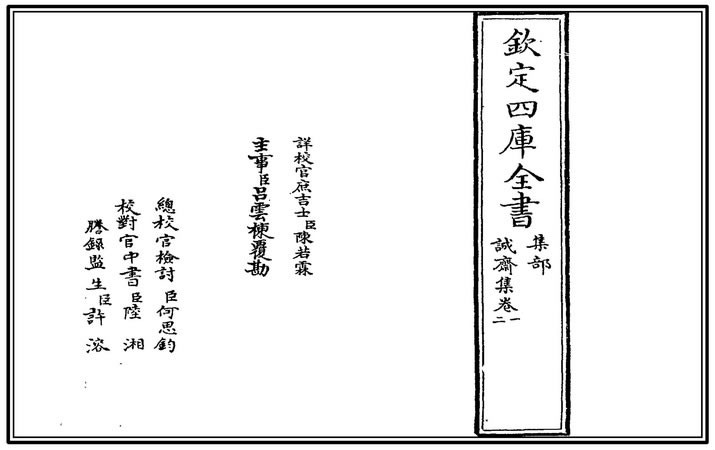 欽定四庫全書
集部
誠齋集卷一二
詳校官庶吉士臣陳若霖
主事臣呂雲棟覆勘
總校官檢討臣何思鈞
校對官中書臣陸湘
謄錄監生臣許溶